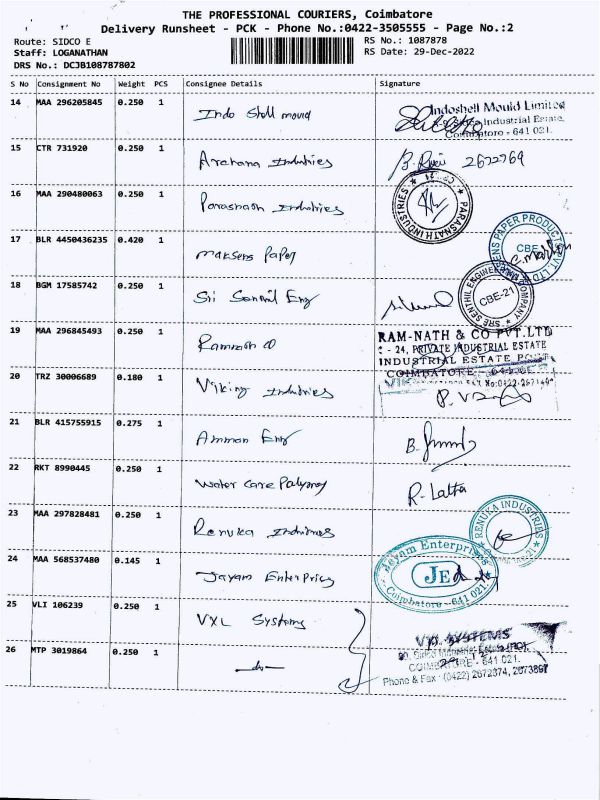 THE PROFESSIONAL COURIERS, Coimbatore
Delivery Runsheet - PCK - Phone No.:0422-3505555 - Page No.:2
Route: SIDCO E RS No.: 1087878
Staff: LOGANATHAN RS Date: 29-Dec-2022
DRS No.: DCJB108787802
S No Consignment No Weight PCS Consignee Details Signature
14 MAA 296205845 0.250 1 Indo Shell mould
Indoshell Mould Limited
Industrial Estate,
Coimbatore - 641 021.
15 CTR 731920 0.250 1 Industries 2672769
16 MAA 290480063 0.250 1 Industries
PARASNATH INDUSTRIES
17 BLR 4450436235 0.420 1 maksens Paper
PAPER PRODUCTS PVT LTD
CBE
18 BGM 17585742 0.250 1 Sri Eng
SRE SENTHIL ENGINEERING COMPANY
CBE-21
19 MAA 296845493 0.250 1
RAM-NATH & CO PVT.LTD
- 24, PRIVATE INDUSTRIAL ESTATE
INDUSTRIAL ESTATE POST
COIMBATORE
20 TRZ 30006689 0.180 1 Viking Industries
21 BLR 415755915 0.275 1 Amman Eng
22 RKT 8990445 0.250 1 water care R. Latha
23 MAA 297828481 0.250 1 Renuka Industries
RENUKA INDUSTRIES
24 MAA 568537480 0.145 1 Jayam Enterprises
Jeyam Enterprises
JE
Coimbatore - 641 021.
25 VLI 106239 0.250 1 VXL Systems
26 MTP 3019864 0.250 1 -do-
VXL SYSTEMS
COIMBATORE - 641 021.
Phone & Fax : (0422) 2672374, 2673867